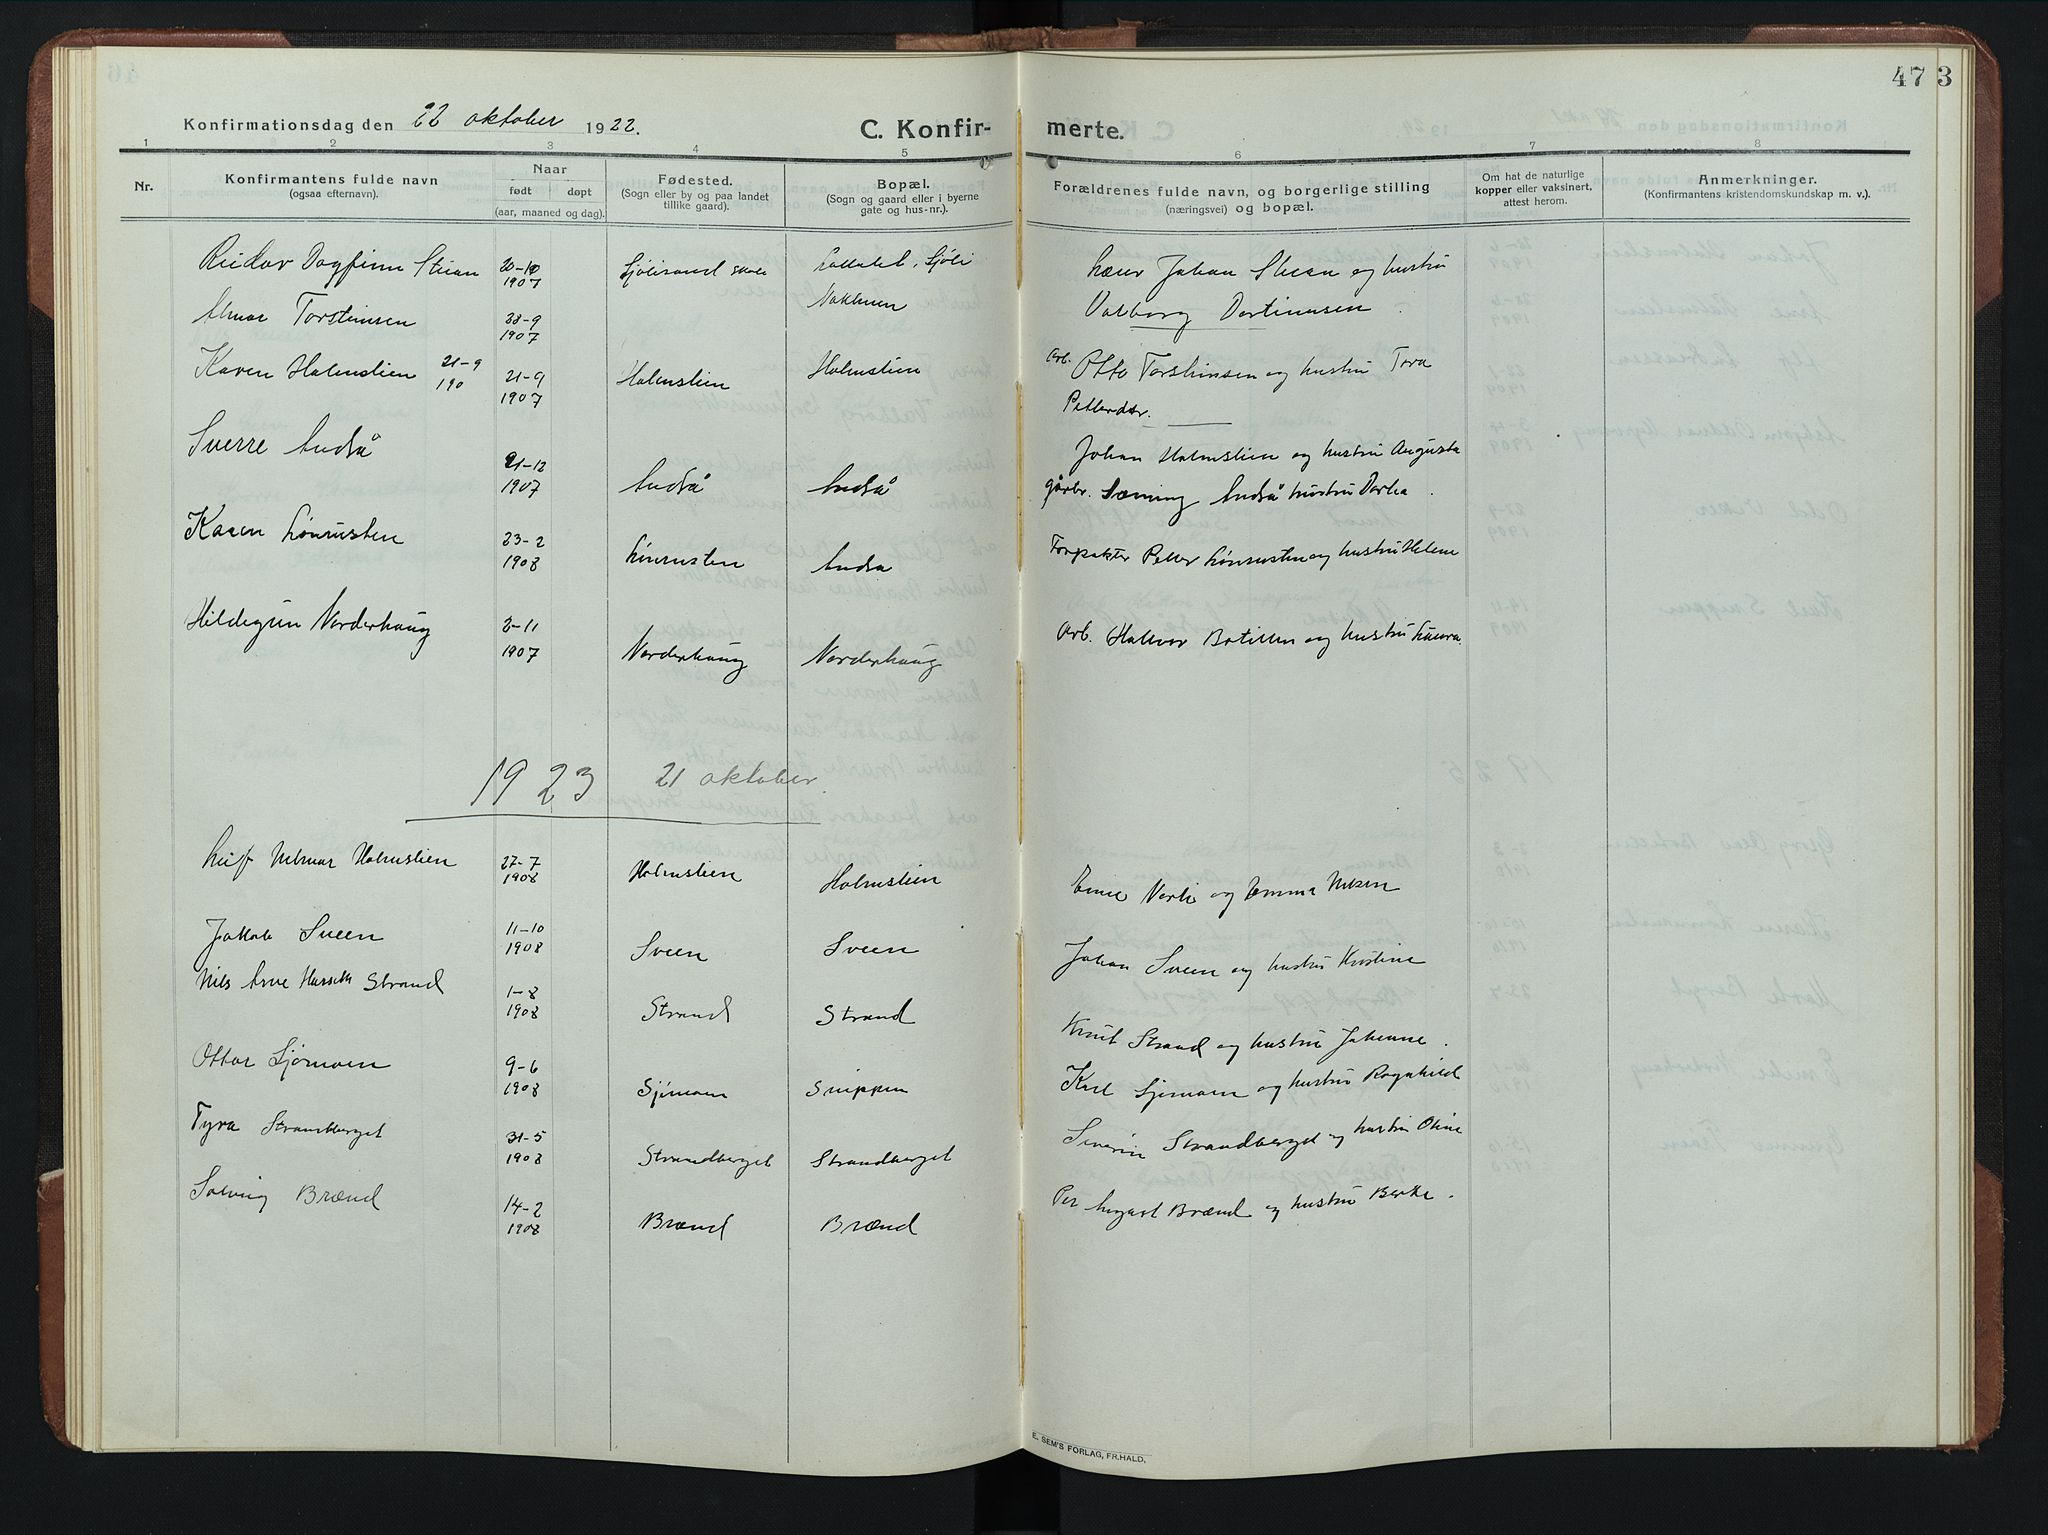 47
3
Konfirmationsdag den 22 oktober 1922.
C. Konfirmerte.
1 2 3 4 5 6 7 8
Nr.
Konfirmantens fulde navn
(ogsaa efternavn).
Naar
født døpt
(aar, maaned og dag).
Fødested.
(Sogn eller by og paa landet
tillike gaard).
Bopæl.
(Sogn og gaard eller i byerne
gate og hus-nr.).
Forældrenes fulde navn, og borgerlige stilling
(næringsvei) og bopæl.
Om hat de naturlige
kopper eller vaksinert,
attest herom.
Anmerkninger.
(Konfirmantens kristendomskundskap m. v.).
Reidar Dagfinn Stuan
20-10
1907
Sjølisand skole
Sjøli
Lærer Johan Stuan og hustru
Torstensen
28-9
1907
Valborg
Karen Holmstien 21-9
190
21-9
1907
Holmstien
Holmstien
Arb. Otto Torstensen og hustru Tora
Pettersdtr.
Sverre Andså
21-12
1907
Andså
Andså
Johan Holmstien og hustru Augusta
gårbr. Andså hustru
Karen Lønrusten
23-2
1908
Lønrusten
Andså
Forpakter Petter Lønrusten og hustru Helene
Hildegun Norderhaug
2-11
1907
Norderhaug
Norderhaug
Arb. Halvor og hustru Laura.
1923 21 oktober.
Leif Holmstien
27-7
1908
Holmstien
Holmstien
og Emma
Jakob Sveen
11-10
1908
Sveen
Sveen
Johan Sveen og hustru Kristine
Nils Arne Strand
1-8
1908
Strand
Strand
Knut Strand og hustru Johanne.
Ottar Sjømoen
9-6
1908
Sjømoen
Snippen
Karl Sjømoen og hustru Ragnhild
Tyra Strandberget
31-5
1908
Strandberget
Strandberget
Severin Strandberget og hustru Oline
Solveig Brænd
14-2
1908
Brænd
Brænd
Per August Brænd og hustru Berte.
E. SEM'S FORLAG, FR.HALD.